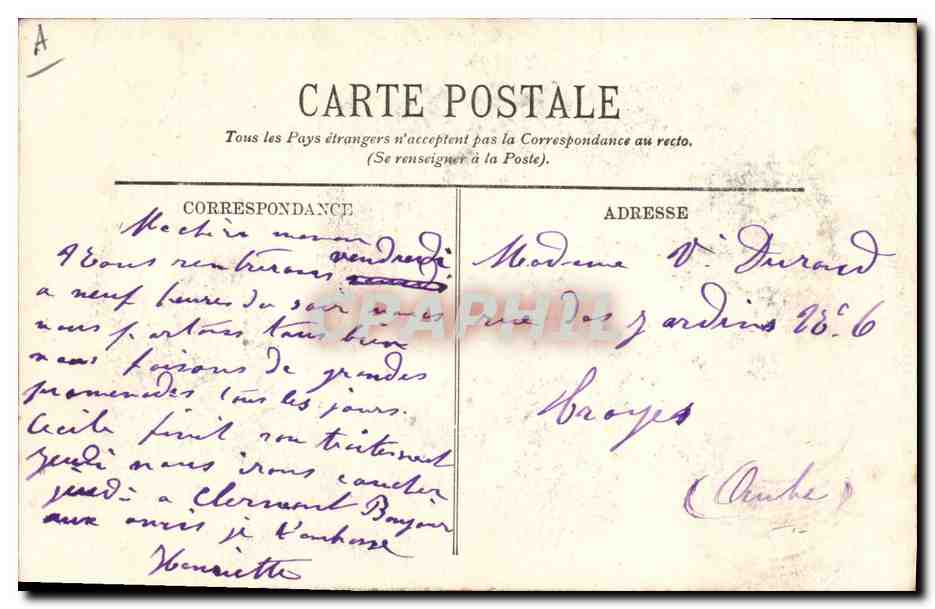 A
CARTE POSTALE
Tous les Pays étrangers n'acceptent pas la Correspondance au recto.
(Se renseigner à la Poste).
CORRESPONDANCE
Ma chère maman
nous rentrerons vendredi
a neuf heures du soir nous
nous portons tous bien
nous faisons de grandes
promenades tous les jours.
Cecile finit son traitement
jeudi nous irons coucher
jeudi a Clermont Bonjour
aux amis je t'embrasse
Henriette
ADRESSE
Madame Ve Durand
rue des jardins 6
Troyes
(Aube)
CPAPHIL